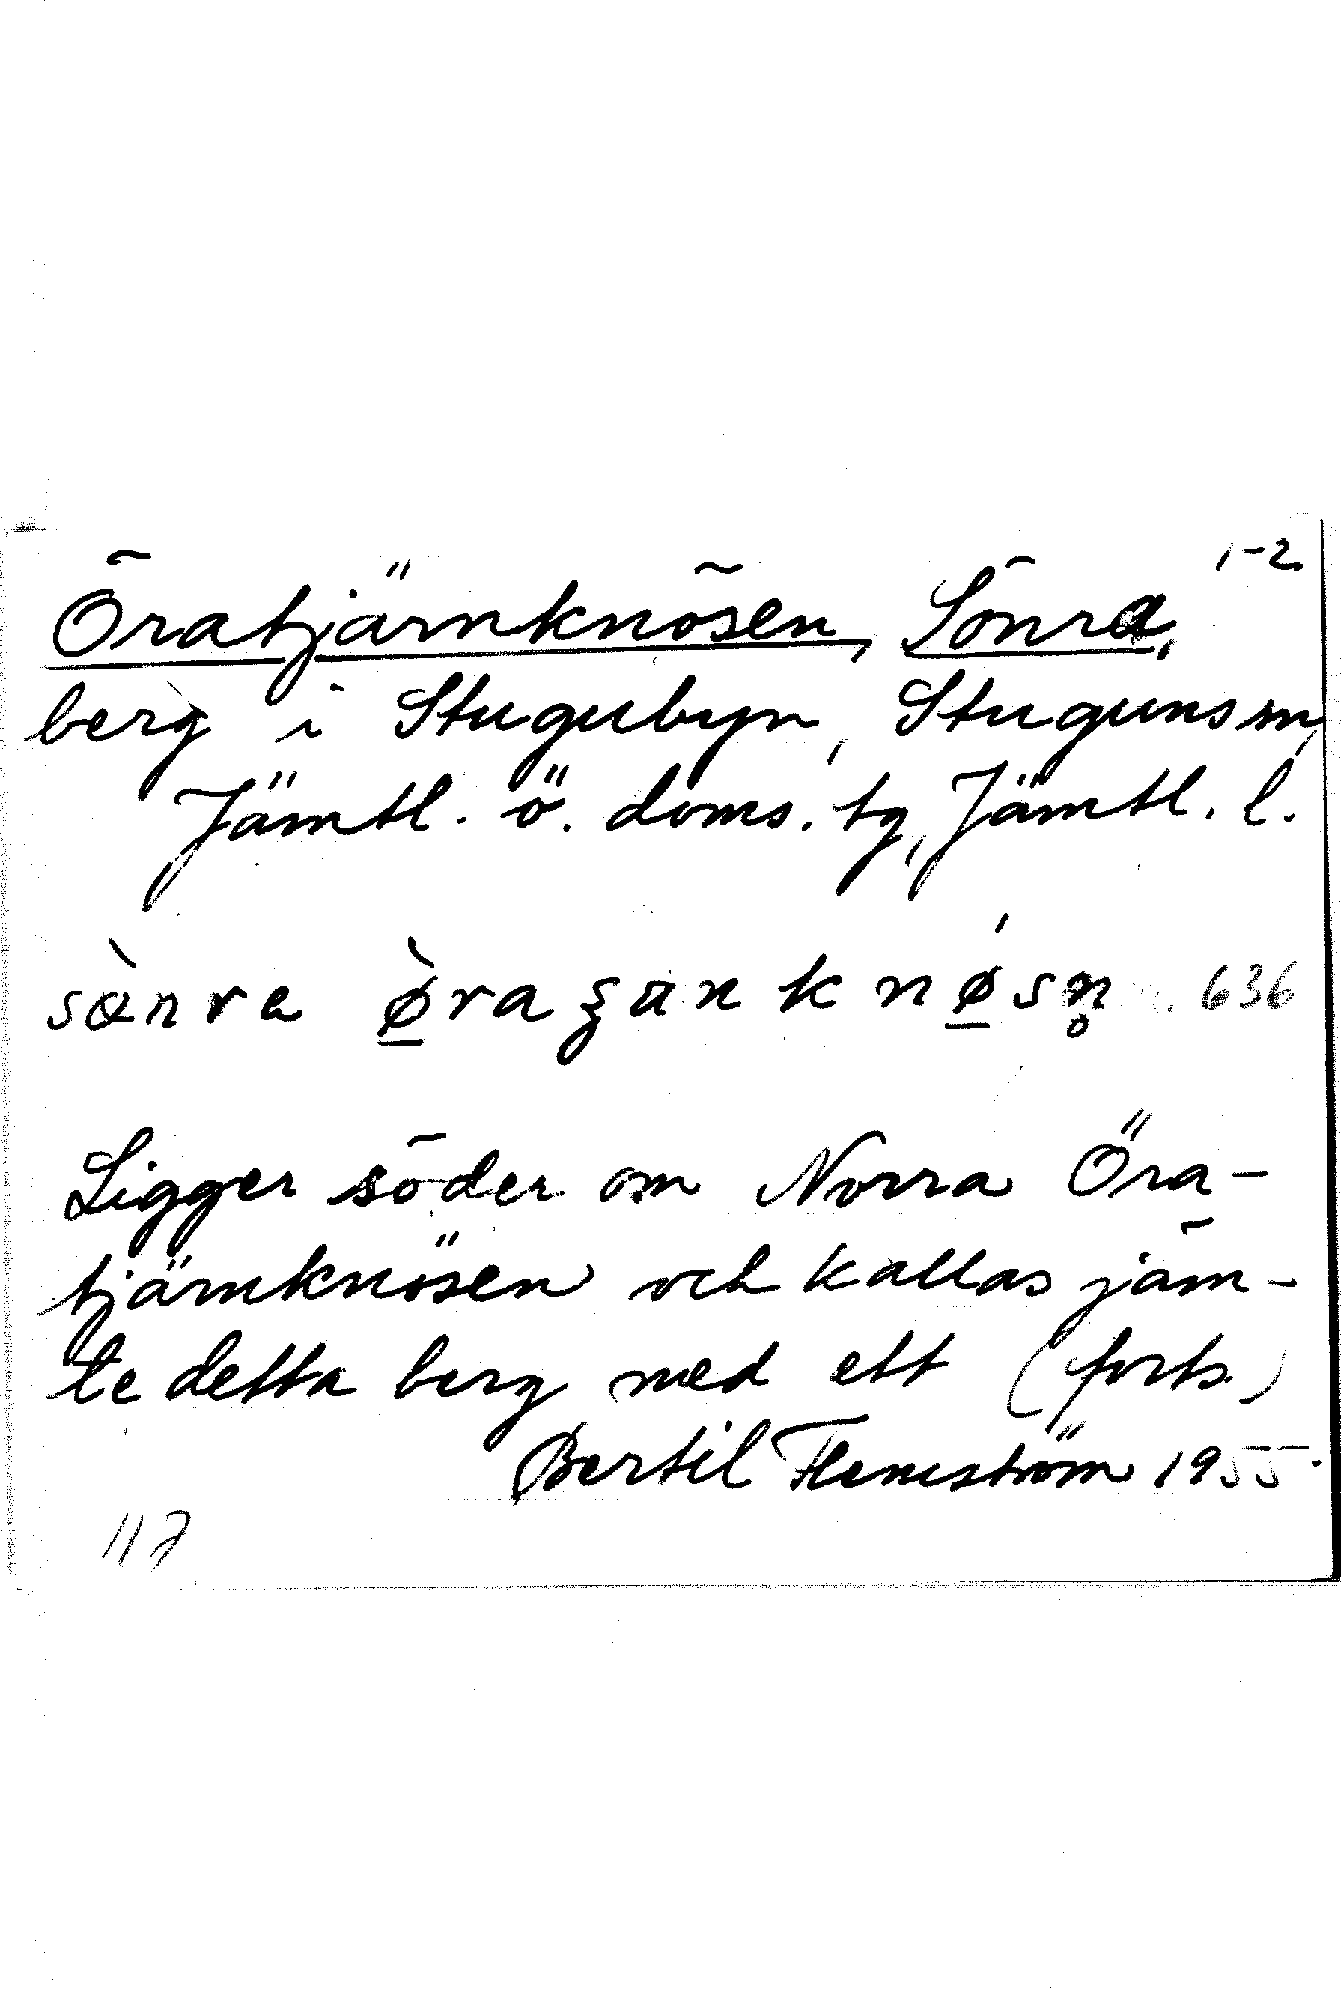 1-2
Öratjärnknösen, Sönra,
berg i Stugubyn, Stuguns sn,
Jämtl. ö. doms. tg, Jämtl. l.
sø̀nra ø̲̀raʒank nǿ̲sn̥ 636
Ligger söder om Norra Öra-
tjärnknösen och kallas jäm-
te detta berg med ett (forts)
Bertil Flemström 1955.
117